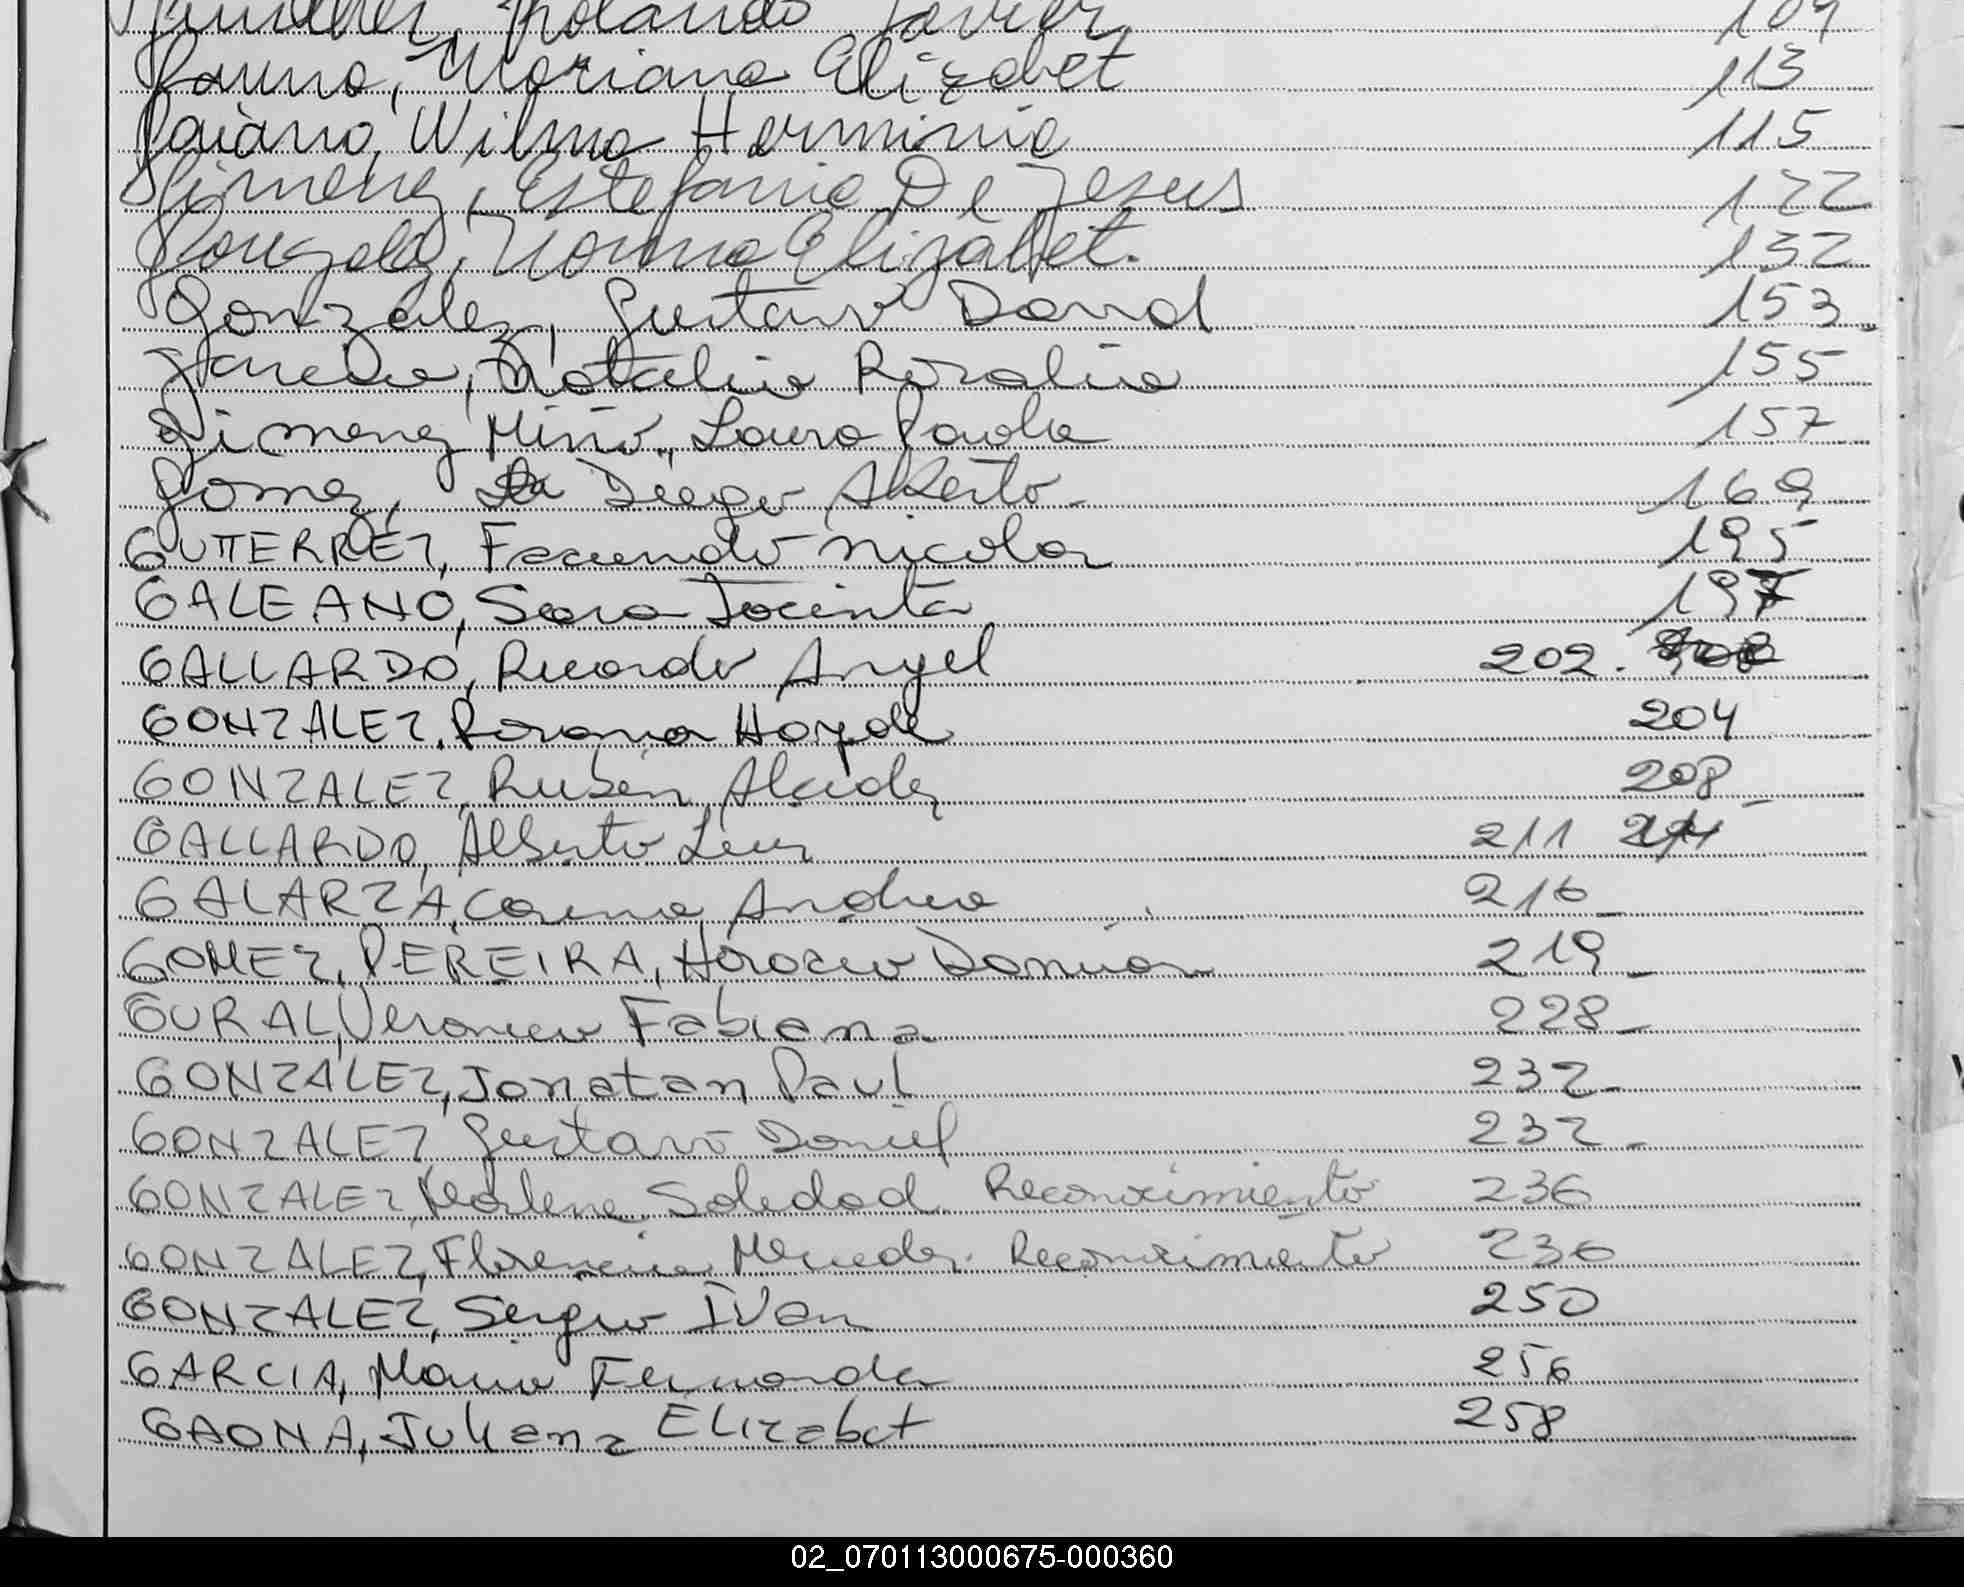 Rolando Javier 109
Gauna, Mariana Elizabet 113
Gaiano, Wilma Herminia 115
Gimenez, Estefania De Jesus 122
Gonzalez, Norma Elizabet. 132
Gonzalez, Gustavo David 153
Natalia Rosalia 155
Gimenez Miño, Laura Paola 157
Gomez, Diego Alberto 169
GUTIERREZ, Facundo Nicolas 195
GALEANO, Sara Jacinta 197
GALLARDO, Ricardo Angel 202.
GONZALEZ, Rosana Hayde 204
GONZALEZ, Ruben Alcides 208
GALLARDO, Alberto Luis 211
GALARZA, Carina Andrea 216
GOMEZ, PEREIRA, Horacio Damian 219
GURAL, Veronica Fabiana 228
GONZALEZ, Jonatan Paul 232
GONZALEZ, Gustavo Daniel 232
GONZALEZ, Marlene Soledad Reconocimiento 236
GONZALEZ, Florencia Mercedes. Reconocimiento 236
GONZALEZ, Sergio Ivan 250
GARCIA, Maria Fernanda 256
GAONA, Juliana Elizabet 258
02_070113000675-000360